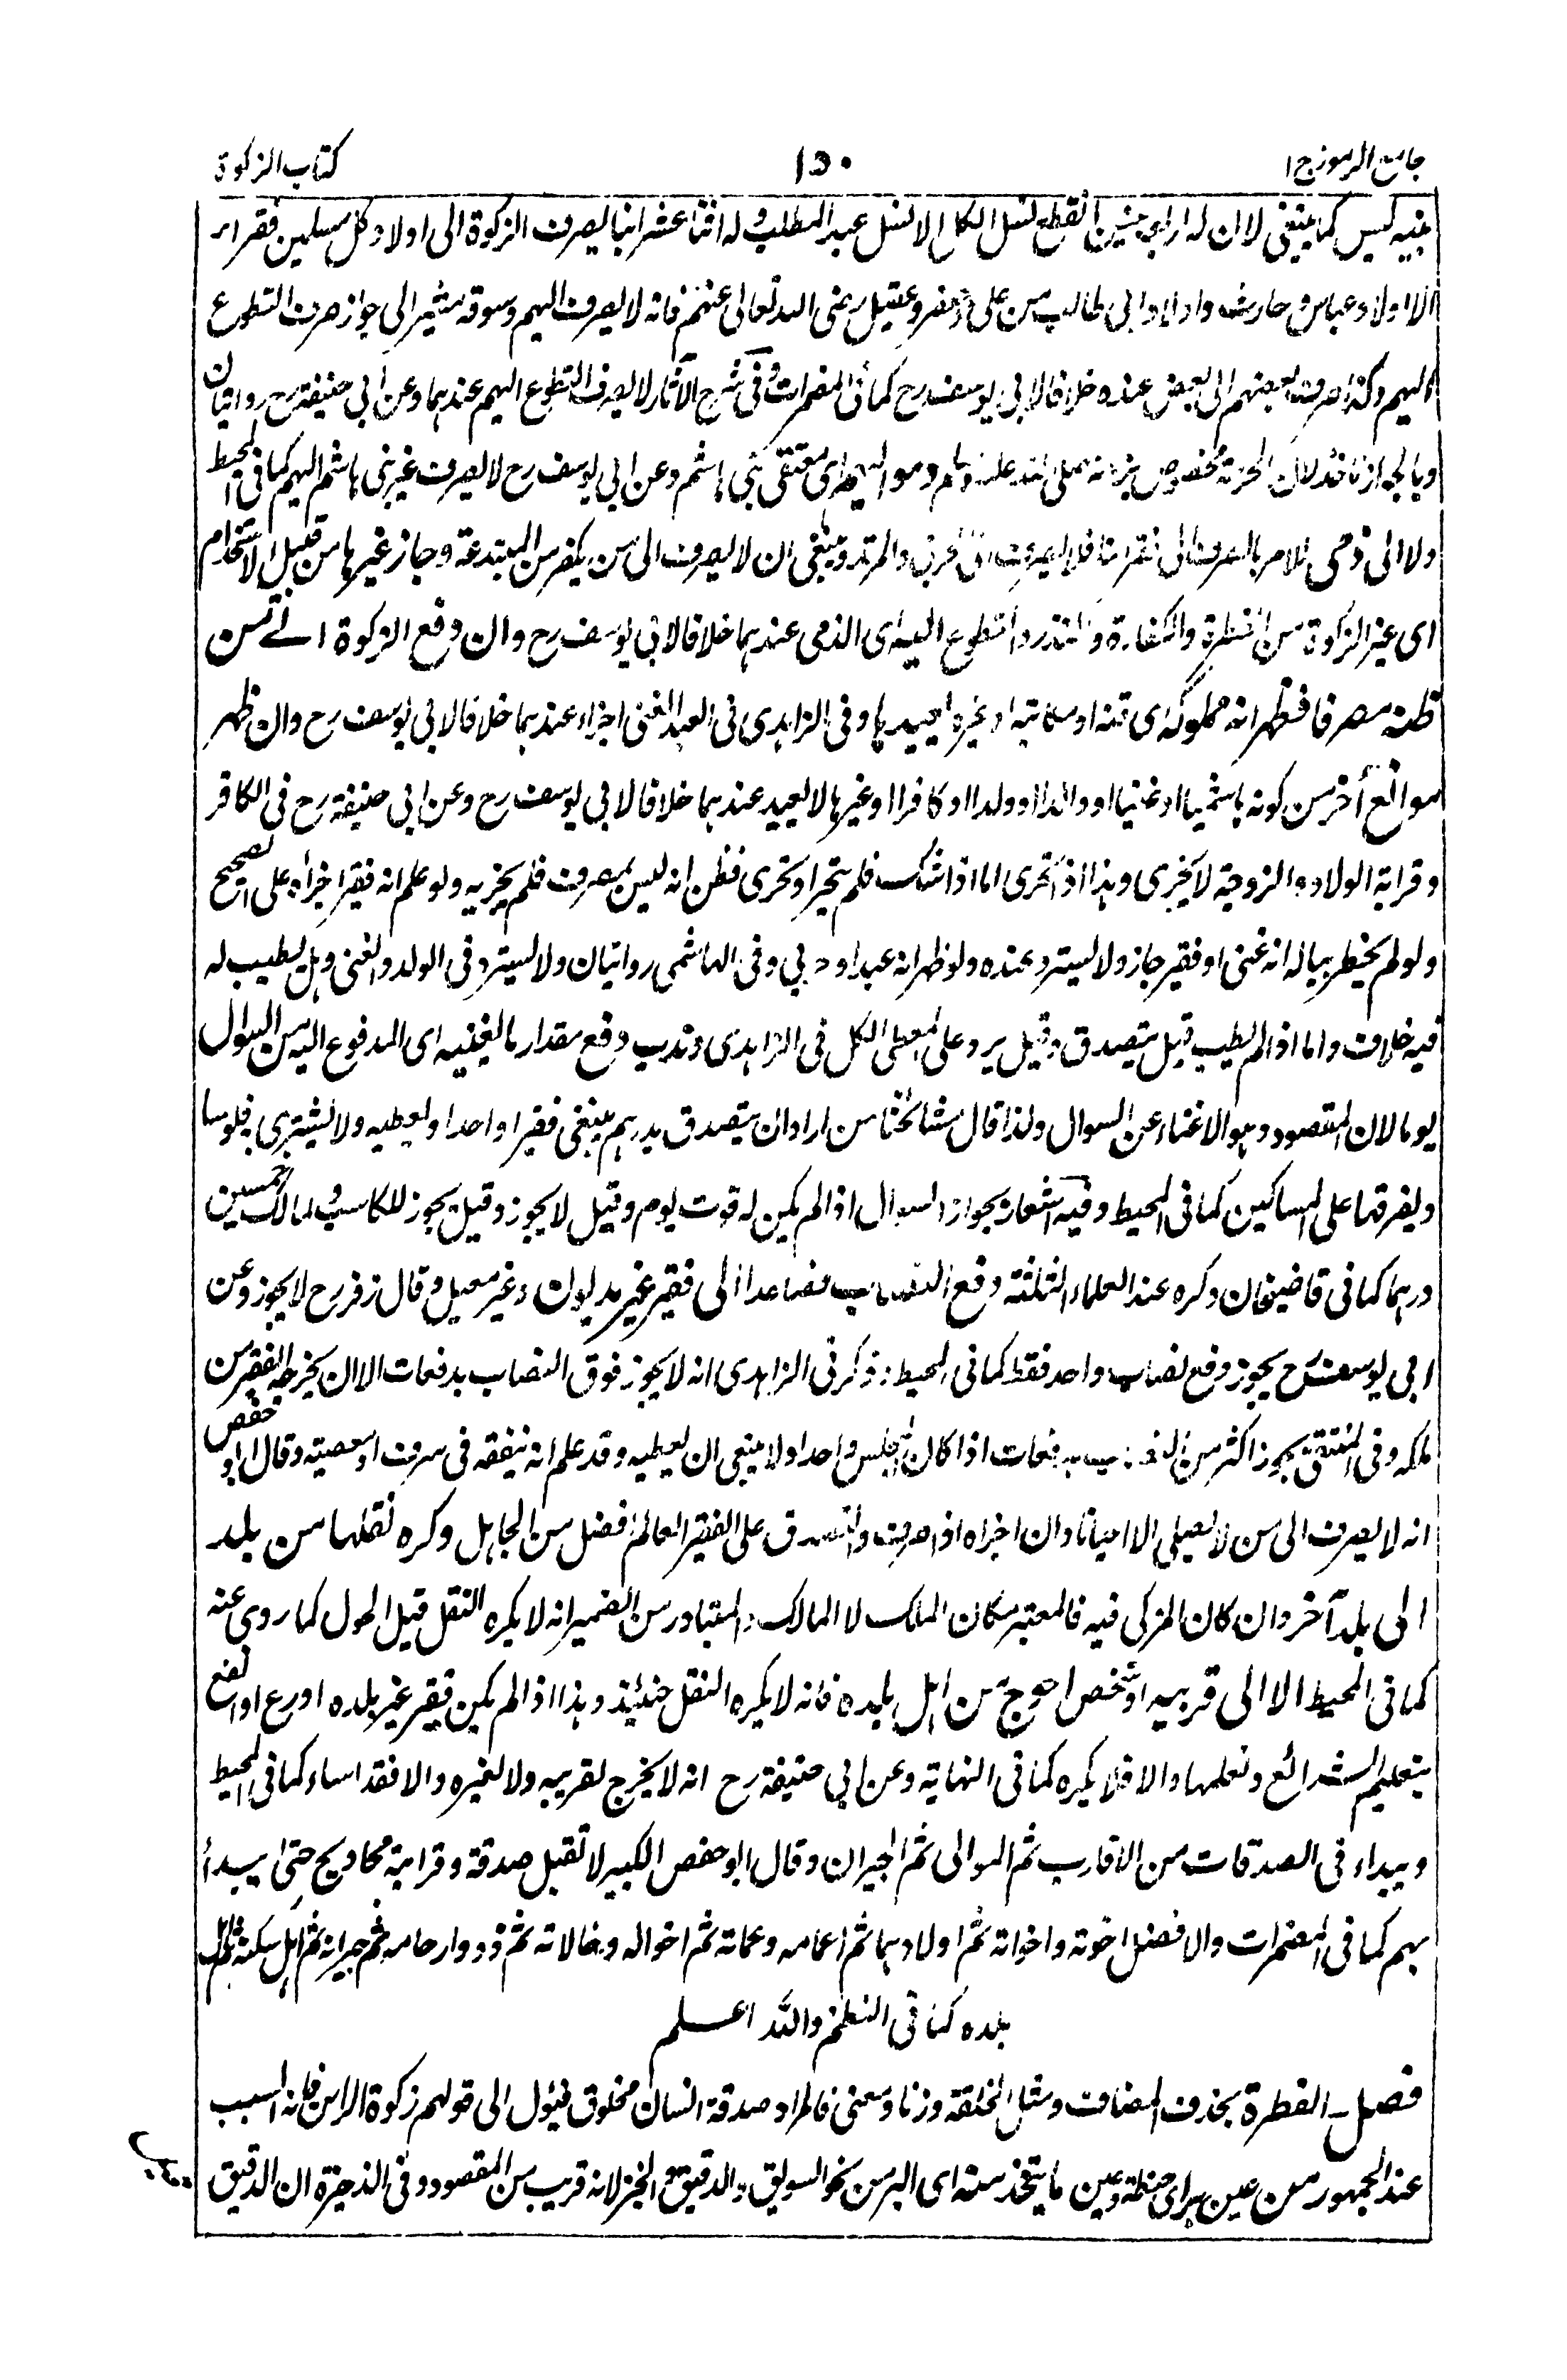 جامع الرموز ج ١
١٥٠
كتاب الزكوة
بنيه ليس كما ينبغي لان له اربع بنين انقطع نسل الكل الا نسل عبد المطلب وله اثنا عشر ابنا يصرف الزكوة الى اولاد كل مسلمين فقراء
الا اولاد عباس وحارث واولاد ابي طالب من علي وجعفر وعقيل رضى الله تعالى عنهم فانه لا يصرف اليهم وسوقه مشير الى جواز صرف التطوع
اليهم وكذا صرف بعضهم الى بعض عنده خلافا لابي يوسف رح كما في المضمرات وفي شرح الآثار لا يصرف التطوع اليهم عندهما وعن ابي حنيفة رح روايتان
وبالجواز ناخذ لان الحرمة مخصوص بزمانه صلى الله عليه وسلم ومواليهم اى معتقى بنى هاشم وعن ابي يوسف رح لا يصرف غير بنى هاشم اليهم كما في المحيط
ولا الى ذمى للامر بالصرف الى فقرائنا فلا يصرف الى حربي والمرتد وينبغى ان لا يصرف الى من يكفر من المبتدعة وجاز غيرها من قبيل الاستخدام
اى غير الزكوة من الفطرة والكفارة والنذر والتطوع اليه اى الذمى عندهما خلافا لابي يوسف رح وان دفع الزكوة الى من
ظنه مصرفا فظهر انه مملوكه اى قنه او مكاتبه او غيره يعيدها وفي الزاهدى في العبد الغنى اجزاء عندهما خلافا لابي يوسف رح وان ظهر
موانع أخر من كونه هاشميا او غنيا او والدا او ولدا او كافرا او غيرها لا يعيد عندهما خلافا لابي يوسف رح وعن ابي حنيفة رح في الكافر
وقرابة الولاد والزوجية لا يجزى وهذا اذا تحرى اما اذا شك فلم يتحر او تحرى فظن انه ليس بمصرف فلم يجزيه ولو علم انه فقير اجزاه على الصحيح
ولو لم يخطر بباله انه غنى او فقير جاز ولا يسترد عنده ولو ظهر انه عبد او حربي وفي الهاشمى روايتان ولا يسترد في الولد والغنى وهل يطيب له
فيه خلاف واما اذا لم يطيب قيل يتصدق وقيل يرد على المعطى الكل في الزاهدى وندب دفع مقدار ما يغنيه اى المدفوع اليه من السوال
يوما لان المقصود وهو الاغناء عن السوال ولذا قال مشائخنا من اراد ان يتصدق بدرهم يبغى فقيرا واحدا ويعطيه ولا يشترى فلوسا
ويفرقها على المساكين كما في المحيط وفيه اشعار بجواز السوال اذا لم يكن له قوت يوم وقيل لا يجوز وقيل يجوز للكاسب ولمالك خمسين
درهما كما في قاضيخان وكره عند العلماء الثلثة دفع النصاب فصاعدا الى فقير غير مديون وغير معيل وقال زفر رح لا يجوز وعن
ابي يوسف رح يجوز دفع نصاب واحد فقط كما في المحيط وذكر في الزاهدى انه لا يجوز فوق النصاب بدفعات الا ان يخرجه الفقير من
ملكه وفي المنتقى يجوز اكثر من النصاب بدفعات اذا كان المجلس واحدا ولا ينبغى ان يعطيه وقد علم انه ينفقه في سرف او معصية وقال ابو حفص
انه لا يصرف الى من لا يصلى الا احيانا وان اجزاه اذا صرف والتصدق على الفقير العالم افضل من الجاهل وكره نقلها من بلد
الى بلد آخر وان كان المزكى فيه فالمعتبر مكان الملك لا المالك والمتبادر من الضمير انه لا يكره النقل قبل الحول كما روى عنه
كما في المحيط الا الى قريبه او شخص احوج من اهل بلده فانه لا يكره النقل حينئذ وهذا اذا لم يكن فقير غير بلده اورع او انفع
بتعليم الشرائع وتعلمها والا فلا يكره كما في النهاية وعن ابي حنيفة رح انه لا يخرج لقريبه ولا لغيره والا فقد اساء كما في المحيط
ويبداء في الصدقات من الاقارب ثم الموالى ثم الجيران وقال ابو حفص الكبير لا تقبل صدقة وقرابة محاويج حتى يبدأ
بهم كما في المضمرات والافضل اخوته واخواته ثم اولادهما ثم اعمامه وعماته ثم اخواله وخالاته ثم ذوو ارحامه ثم جيرانه ثم اهل سكنه ثم اهل
بلده كما في النظم والله اعلم
فصل ــ الفطرة بحذف المضاف ومثل الخلقة وزنا ومعنى فالمراد صدقة انسان مخلوق فيئول الى قولهم زكوة الراس فانه السبب
عند الجمهور من عين براى حنطة وعين ما يتخذ منه اى البر من نحو السويق والدقيق والخبز لانه قريب من المقصود وفي الذخيرة ان الدقيق